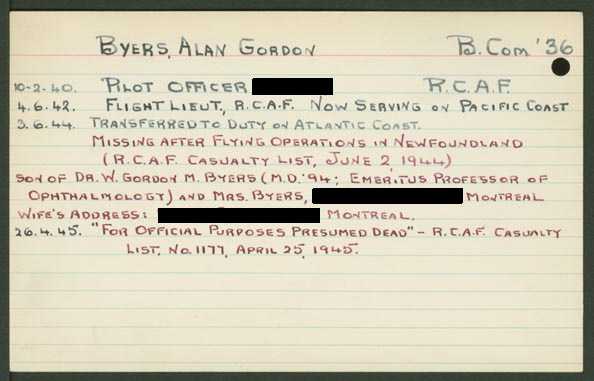 BYERS, ALAN GORDON B. COM. '36
10-2-40. PILOT OFFICER R.C.A.F.
4.6.42. FLIGHT LIEUT., R.C.A.F. NOW SERVING ON PACIFIC COAST
3.6.44. TRANSFERRED TO DUTY ON ATLANTIC COAST.
MISSING AFTER FLYING OPERATIONS IN NEWFOUNDLAND
(R.C.A.F. CASUALTY LIST, JUNE 2 1944)
SON OF DR. W. GORDON M. BYERS (M.D. '94; EMERITUS PROFESSOR OF
OPHTHALMOLOGY) AND MRS. BYERS, MONTREAL
WIFE'S ADDRESS: MONTREAL.
26.4.45. "FOR OFFICIAL PURPOSES PRESUMED DEAD" - R.C.A.F. CASUALTY
LIST, NO. 1177, APRIL 25, 1945.